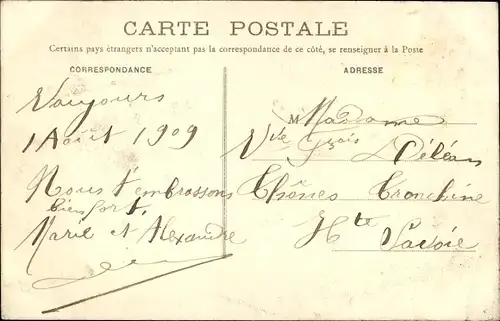 CARTE POSTALE
Certains pays étrangers n'acceptant pas la correspondance de ce côté, se renseigner à la Poste
CORRESPONDANCE
Vaujours
1 Août 1909
Nous t'embrassons
bien fort,
Marie et Alexandre
ADRESSE
M Madame
Vve
Déléan
Thônes Tronchine
Hte Savoie